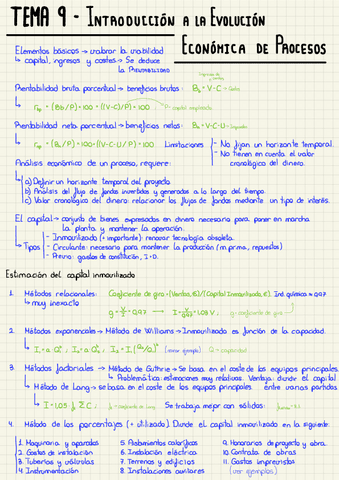 TEMA 9 - INTRODUCCIÓN A LA EVOLUCIÓN
ECONÓMICA DE PROCESOS
Elementos básicos → valorar la viabilidad
↳ capital, ingresos y costes → Se deduce
la RENTABILIDAD
Rentabilidad bruta porcentual → beneficios brutos: Bb = V - C → Costes
= (Bb/P)·100 = ((V-C)/P)·100
Rentabilidad neta porcentual → beneficios netos: Bn = V-C-U
= (Bn/P)·100 = ((V-C-U)/P)·100
Limitaciones
- No fijan un horizonte temporal.
- No tienen en cuenta el valor
cronológico del dinero.
Análisis económico de un proceso, requiere:
a) Definir un horizonte temporal del proyecto
b) Análisis del flujo de fondos invertidos y generados a lo largo del tiempo.
c) Valor cronológico del dinero: relacionar los flujos de fondos mediante un tipo de interés.
El capital → conjunto de bienes expresados en dinero necesario para poner en marcha
la planta y mantener la operación.
↳ Tipos
- Inmovilizado (+ importante): renovar tecnología obsoleta.
- Circulante: necesario para mantener la producción (m. prima, repuestos)
- Previo: gastos de constitución, I+D.
Estimación del capital inmovilizado
1. Métodos relacionales: Coeficiente de giro = (Ventas, €)/(Capital Inmovilizado, €). Ind. química ≈ 0,97
↳ muy inexacto
g = V/I = 0,97 → I = V/0,97 = 1,03 V; g - coeficiente de giro
2. Métodos exponenciales → Método de Williams → Inmovilizado es función de la capacidad.
(mirar ejemplo) Q = capacidad
3. Métodos factoriales → Método de Guthrie → Se basa en el coste de los equipos principales.
↳ Problemática: estimaciones muy relativas. Ventaja: divide el capital
↳ Método de Lang → se basa en el coste de los equipos principales entre varias partidas
I = 1,05 · f · Σ C; Se trabaja mejor con sólidos:
4. Método de los porcentajes (+ utilizado) Divide el capital inmovilizado en la siguiente:
1. Maquinaria y aparatos
2. Gastos de instalación
3. Tuberías y válvulas
4. Instrumentación
5. Aislamientos caloríficos
6. Instalación eléctrica
7. Terrenos y edificios
8. Instalaciones auxiliares
9. Honorarios de proyecto y obra.
10. Contrata de obras
11. Gastos imprevistos
(ver ejemplos)